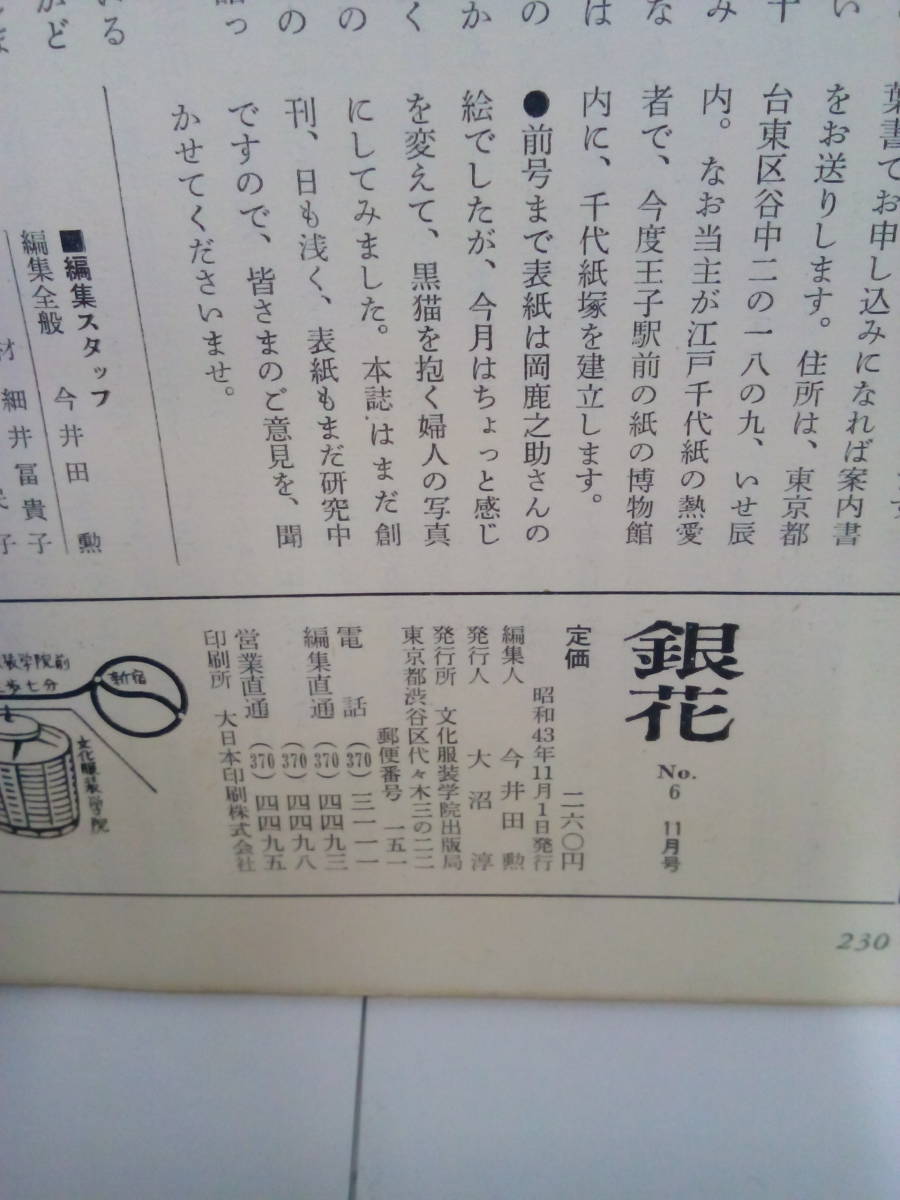 葉書でお申し込みになれば案内書
をお送りします。住所は、東京都
台東区谷中二の一八の九、いせ辰
内。なお当主が江戸千代紙の熱愛
者で、今度王子駅前の紙の博物館
内に、千代紙塚を建立します。
●前号まで表紙は岡鹿之助さんの
絵でしたが、今月はちょっと感じ
を変えて、黒猫を抱く婦人の写真
にしてみました。本誌はまだ創
刊、日も浅く、表紙もまだ研究中
ですので、皆さまのご意見を、聞
かせてくださいませ。
■編集スタッフ
今井田 勲
編集全般
細井冨貴子
銀花
No.
6
11月号
定価 二六〇円
昭和43年11月1日発行
編集人 今井田 勲
発行人 大沼 淳
発行所 文化服装学院出版局
東京都渋谷区代々木三の二二
郵便番号 一五一
電話 (370) 三一一一
編集直通 (370) 四四九三
(370) 四四九八
営業直通 (370) 四四九五
印刷所 大日本印刷株式会社
新宿
装学院前
歩七分
文化服装学院
230